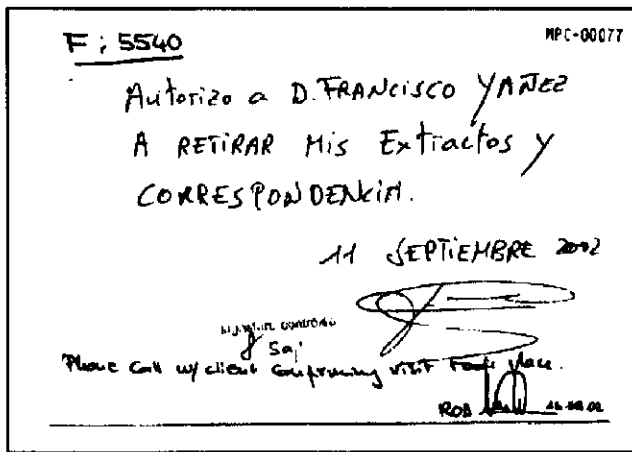 F: 5540
MPC-00077
Autorizo a D. FRANCISCO YAÑEZ
A RETIRAR Mis Extractos y
CORRESPONDENCIA.
11 SEPTIEMBRE 2002
Phone Call w/ client confirming visit took place.
ROD